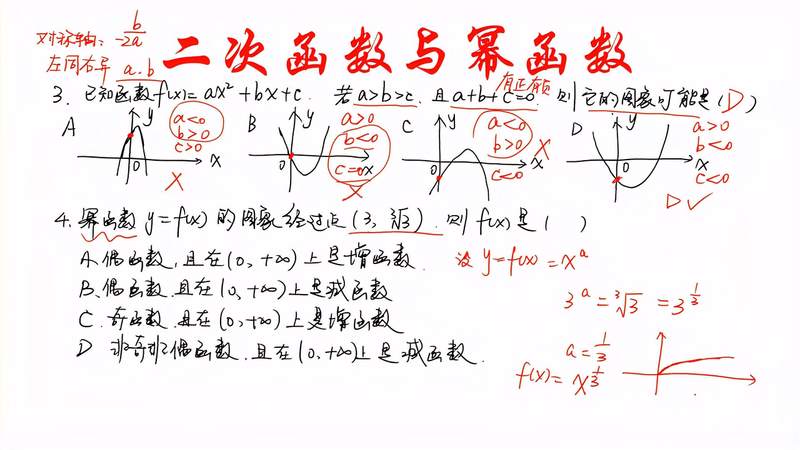 二次函数与幂函数
对称轴: -b/2a
左同右异 a.b
3. 已知函数f(x)=ax²+bx+c. 若a>b>c. 且a+b+c=0. 则它的图象可能是(D)
有正有负
A y 0 x a<0 b>0 c>0 X
B y 0 x a>0 b<0 c=0 X
C y 0 x a<0 b>0 c<0 X
D y 0 x a>0 b<0 c<0 D✓
4. 幂函数 y=f(x) 的图象经过点(3, ³√3). 则f(x)是( )
A.偶函数,且在(0,+∞)上是增函数.
设 y=f(x)=x^a
B.偶函数.且在(0,+∞)上是减函数
3^a=³√3=3^(1/3)
C.奇函数.且在(0,+∞)上是增函数
D 非奇非偶函数.且在(0,+∞)上是减函数.
a=1/3
f(x)=x^(1/3)